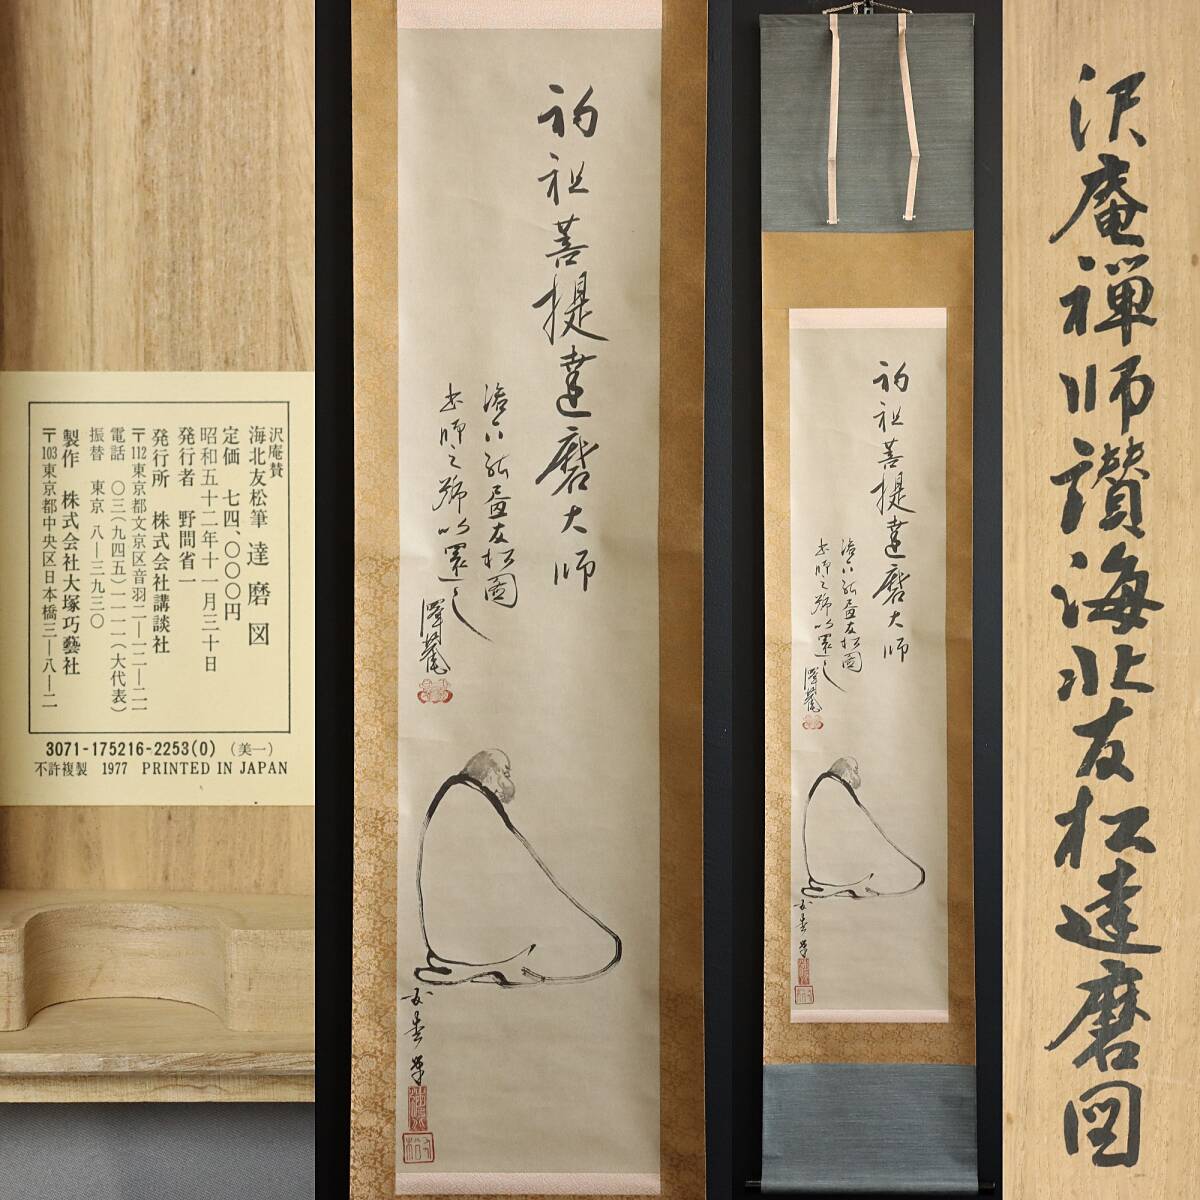 沢庵賛
海北友松筆 達磨図
定価 七四、〇〇〇円
昭和五十二年十一月三十日
発行者 野間省一
発行所 株式会社講談社
〒112東京都文京区音羽二―一二―二一
電話 〇三(九四五)一一一一(大代表)
振替 東京 八―三九三〇
製作 株式会社大塚巧藝社
〒103東京都中央区日本橋三―八―二
3071-175216-2253(0) (美一)
不許複製 1977 PRINTED IN JAPAN
初祖菩提達磨大師
友松圖
師之號以置之
澤菴
初祖菩提達磨大師
友松圖
師之號以置之
澤菴
沢庵禅師讃海北友松達磨図